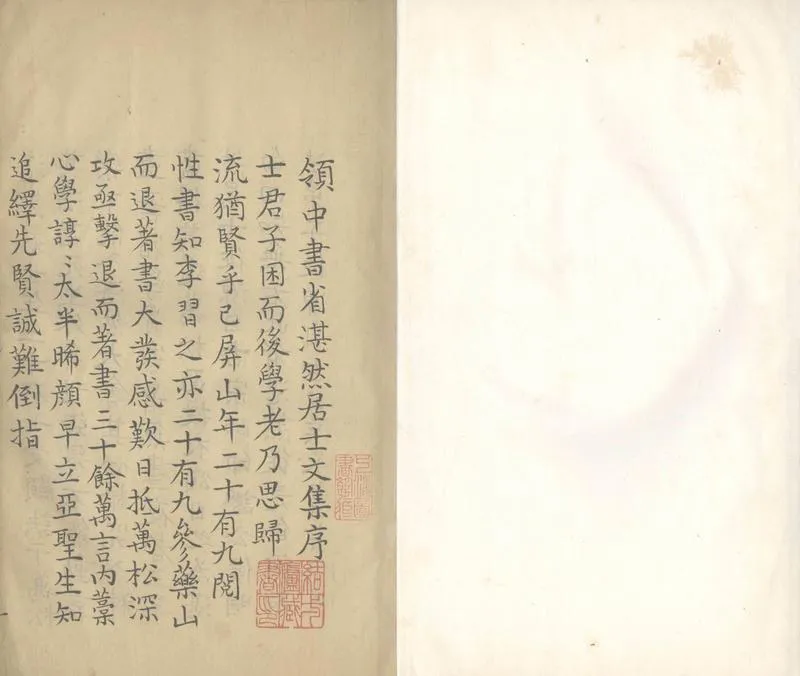 領中書省湛然居士文集序
士君子困而後學老乃思歸
流猶賢乎已屏山年二十有九閱
性書知李習之亦二十有九參藥山
而退著書大發感歎日抵萬松深
攻亟擊退而著書三十餘萬言內藁
心學諄〻太半晞顏早立亞聖生知
追繹先賢誠難倒指